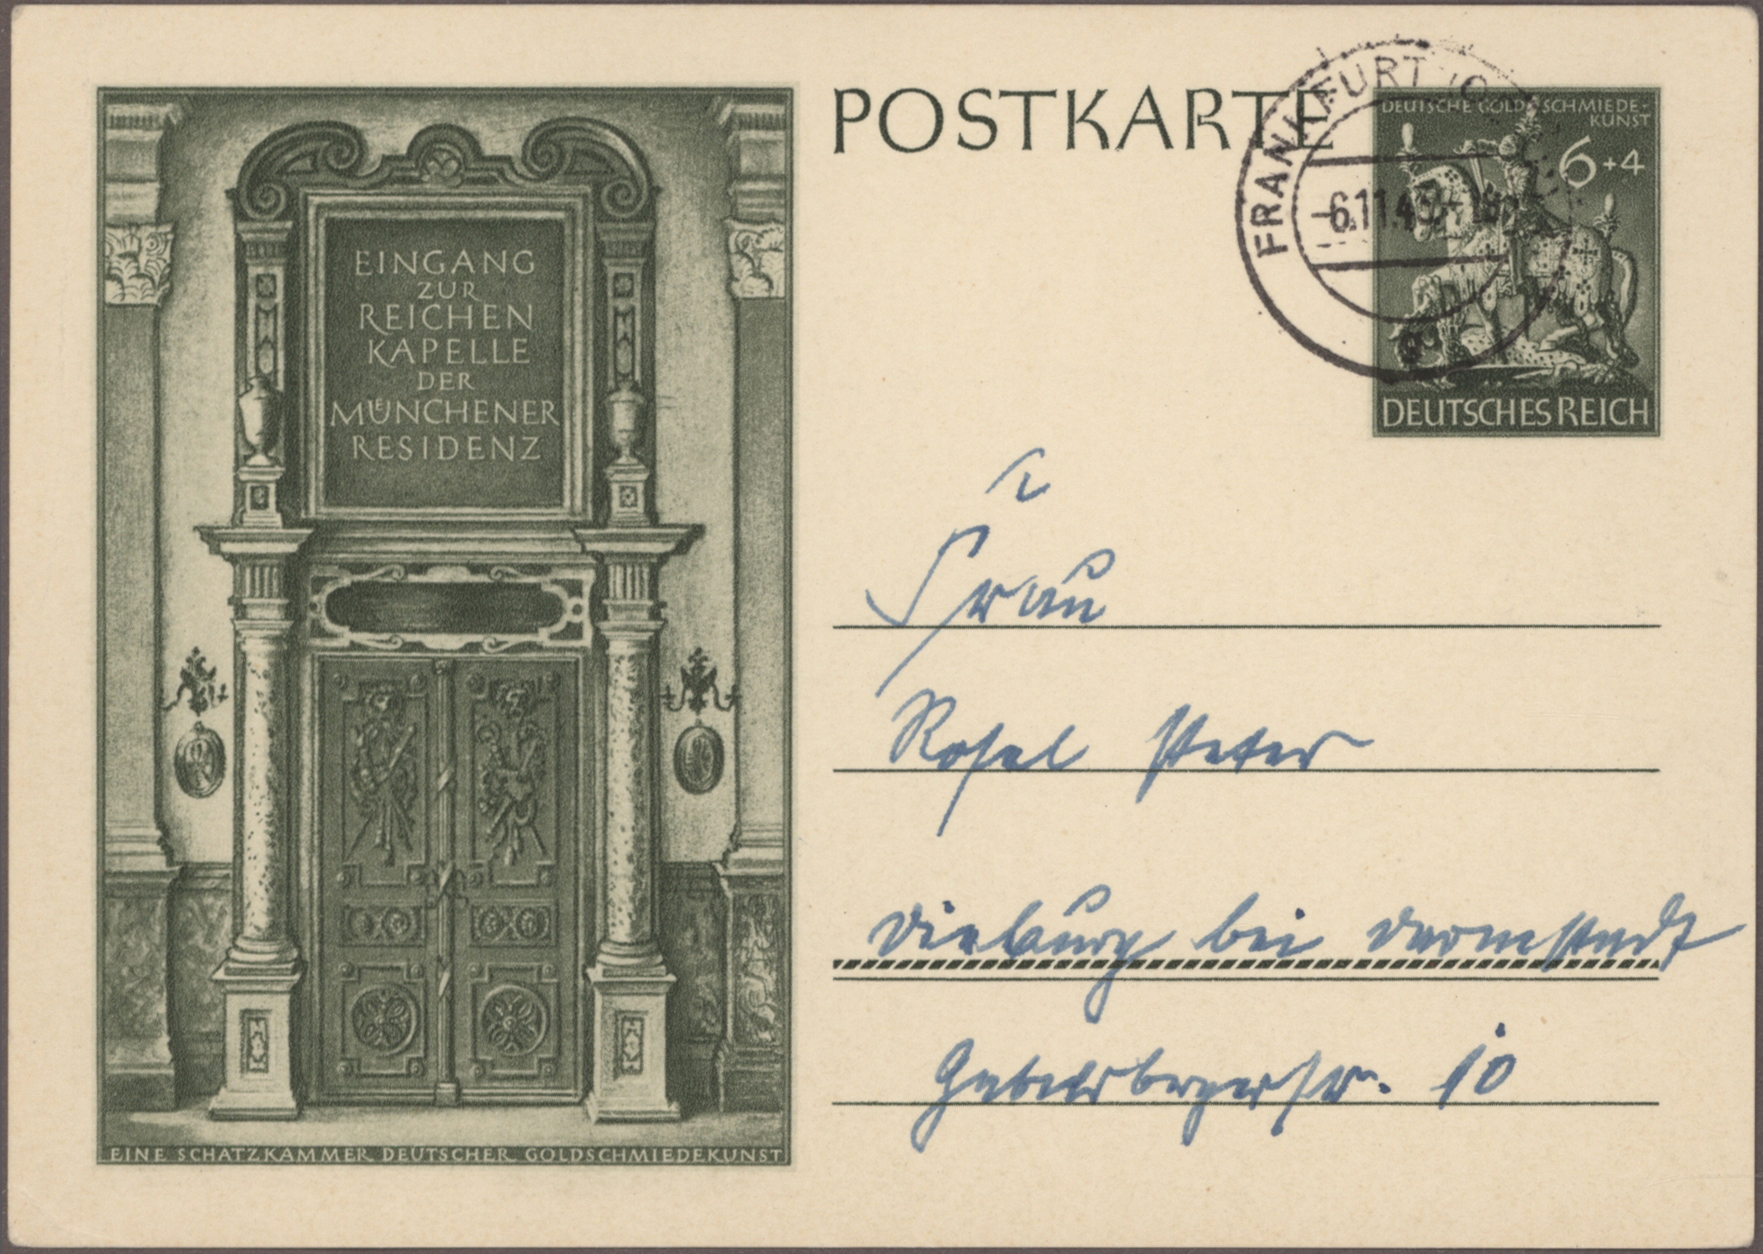 EINGANG
ZUR
REICHEN
KAPELLE
DER
MÜNCHENER
RESIDENZ
EINE SCHATZKAMMER DEUTSCHER GOLDSCHMIEDEKUNST
POSTKARTE
FRANKFURT (O
-6.11.43
gg
DEUTSCHE GOLDSCHMIEDE-
KUNST
6+4
DEUTSCHES REICH
Frau
Rosel Peter
Dieburg bei Darmstadt
10